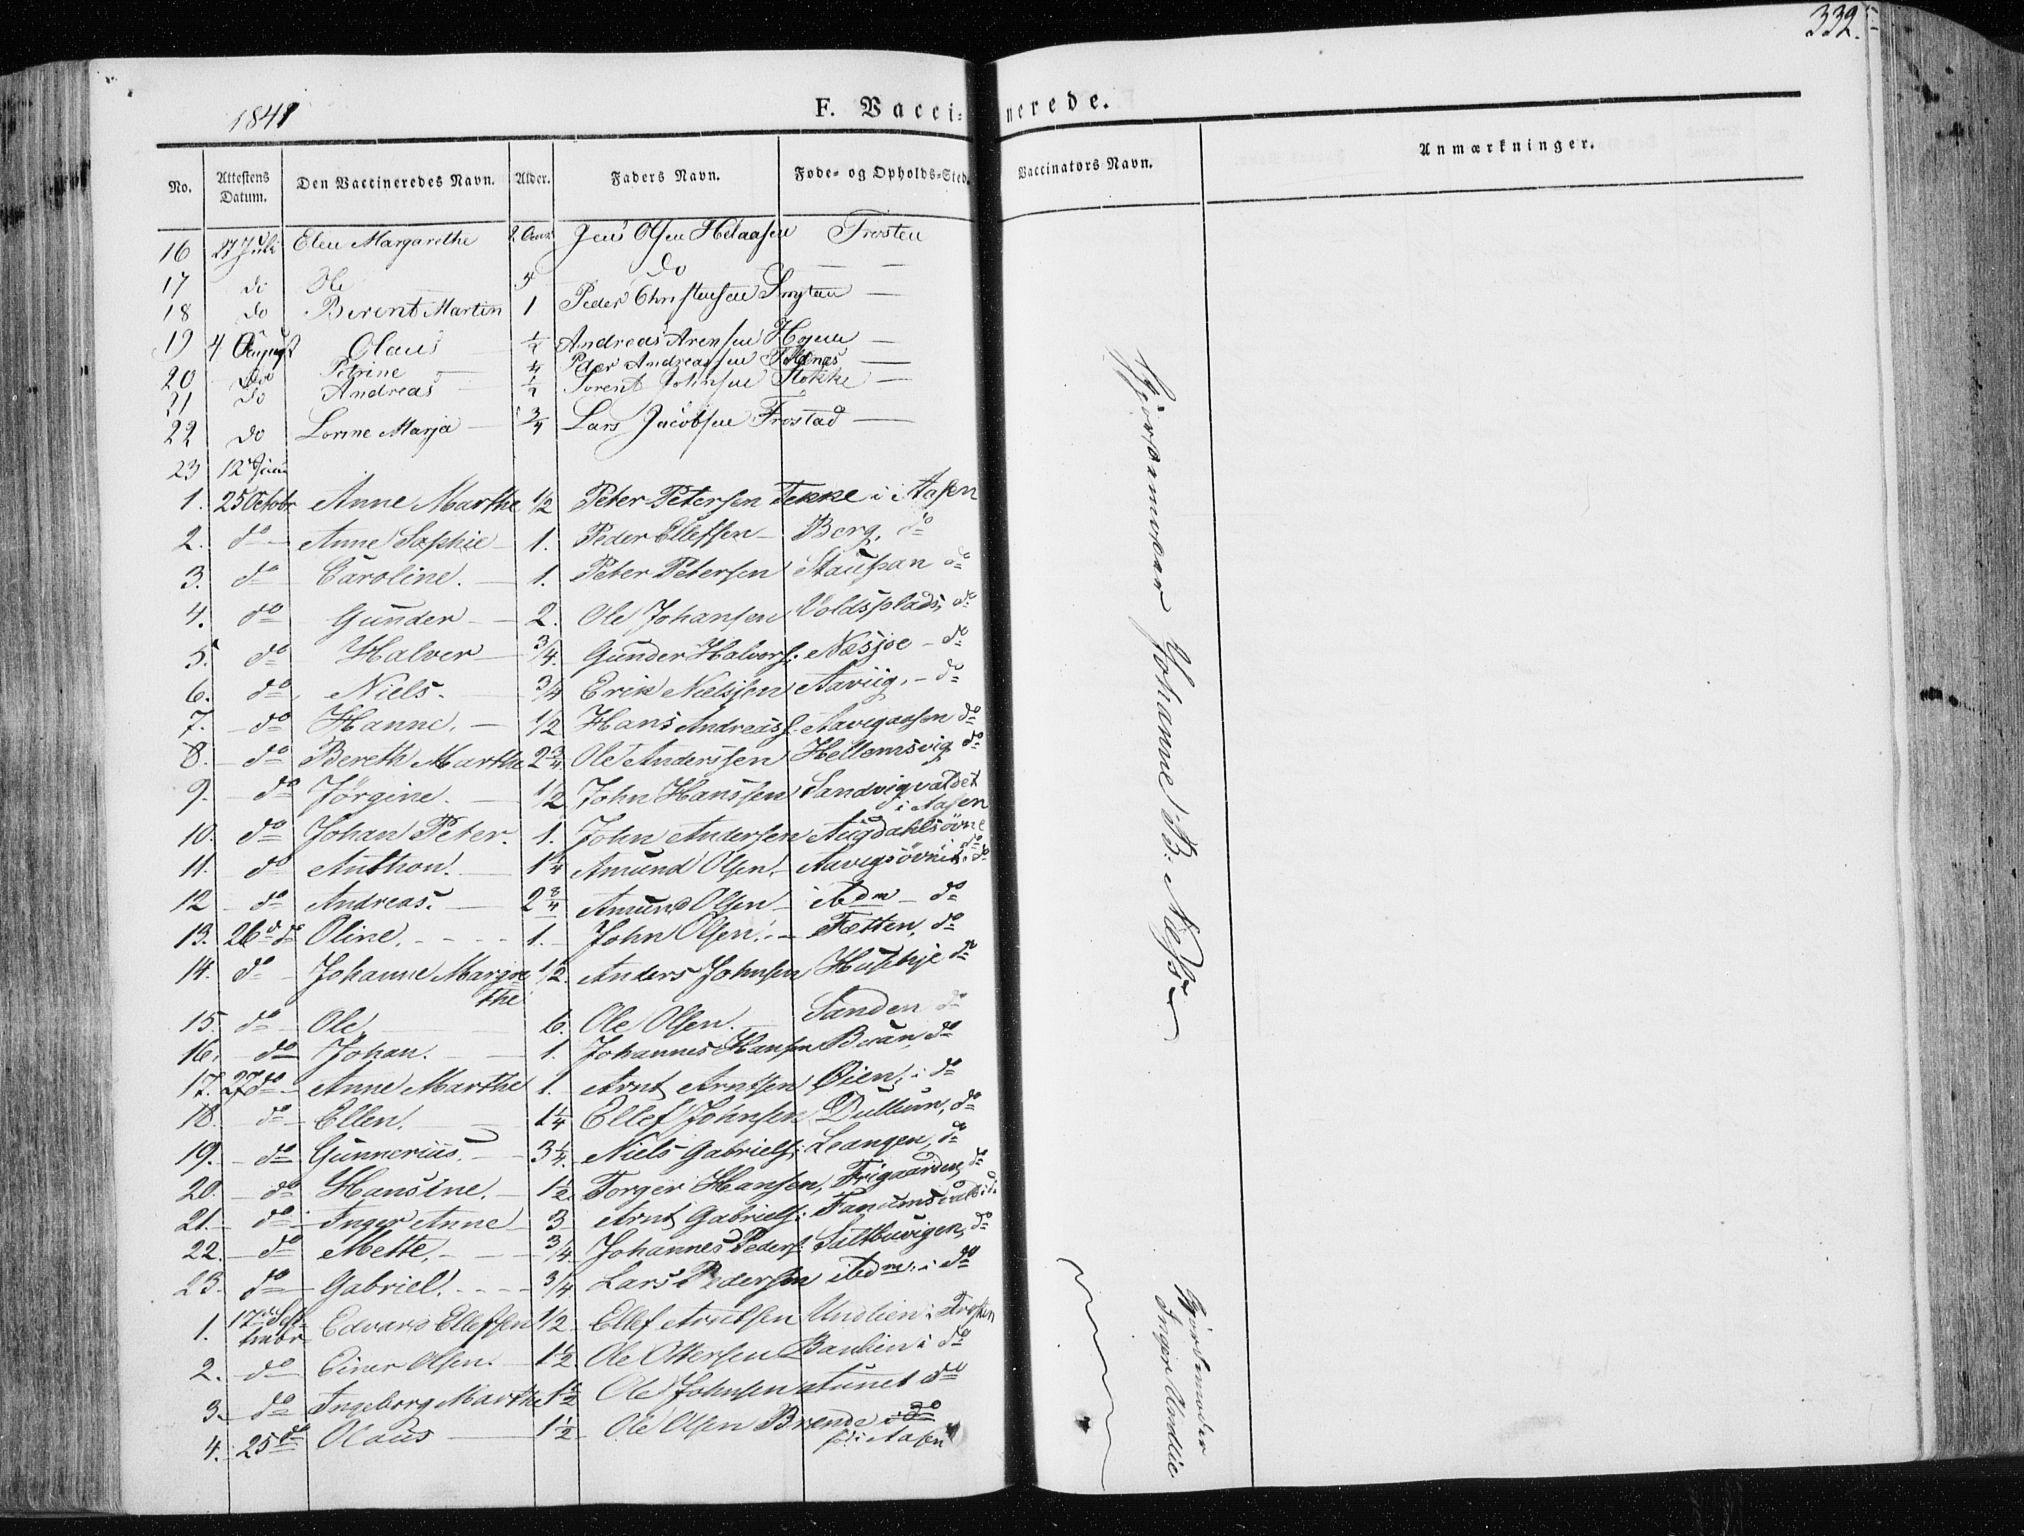 332.
1841
F. Vaccinerede.
No. Attestens Datum. Den Vaccineredes Navn. Alder. Faders Navn. Føde- og Opholds-Sted. Vaccinators Navn. Anmærkninger.
16 27 Juli Elen Margarethe 2 Jens Olsen Frosten
17 do Ole 4 do
18 do Berent Martin 1 Peder Christensen
19 4 August Olaus 1/4 Andreas Arensen
20 do Petrine Peder Andreassen
21 do Andreas Sorent Johnsen Stokke
22 do Lorine Marja 3/4 Lars Jacobsen Frostad
23 12 Juni
1. 25 Octobr Anne Marthe 1/2 Peter Petersen Tekke i Aasen
2. do Anne Sophie 1. Peder Elleffsen Berg, do
3. do Caroline. 1. Peter Petersen Staupan do
4. do Gunder 2. Ole Johansen Voldsplads, do
5. do Halver 3/4. Gunder Halvors: Næsjoe do
6. do Niels. 3/4 Erik Nielssen Aaviig, do
7. do Hanne. 1/2 Hans Andreass: Aavigaasen do
8. do Bereth Marthe 2 3/4 Ole Anderssen Hellemsvig do
9. do Jörgine. 1/2 John Hanssen Sandvigvaldet
i Aasen
10. do Johan Peter. 1. John Andersen Augdahlsövne
do
11. do Anthon. 1 1/4 Amund Olsen. do
12 do Andreas. 2 3/4 Amund Olsen ibdm do
13. 26 do Oline. 1. John Olsen. Fætten. do
14. do Johanne Margre 1/2. Anders Johnsen Husbye do
the
15. do Ole 6. Ole Olsen. Sanden do
16. do Johan. 1. Johannes Hansen do
17. 27 do Anne Marthe 1. Arnt Arntsen Öien, i do
18. do Ellen. 1 1/4 Ellef Johnsen Dullum, do
19. do Gunnerius. 3 1/4. Niels Gabriels: Leangen, do
20. do Hansine. 1 1/2. Torger Hansen, Frigaarden, do
21. do Inger Anne 3 Arnt Gabriels:
22. do Mette. 3/4. Johannes Peders: Saltbuvigen, do
23. do Gabriel. 3/4 Lars Pedersen ibdm: i do
1. 17de Sept
tmbr Edvard Elleffsen 1/2 Ellef Arntsen Undlien i Frosten
2. do Einer Olsen. 1 1/2. Ole Ottersen i do
3. do Ingeborg Marthe 1 1/2 Ole Johnsen Aunet do
4. 25 do Olaus 1 1/2 Ole Olsen Brende i do
föd i Aasen
Gjordemoer Johanne B: Næss
Gjordemoder
Inger Undlie